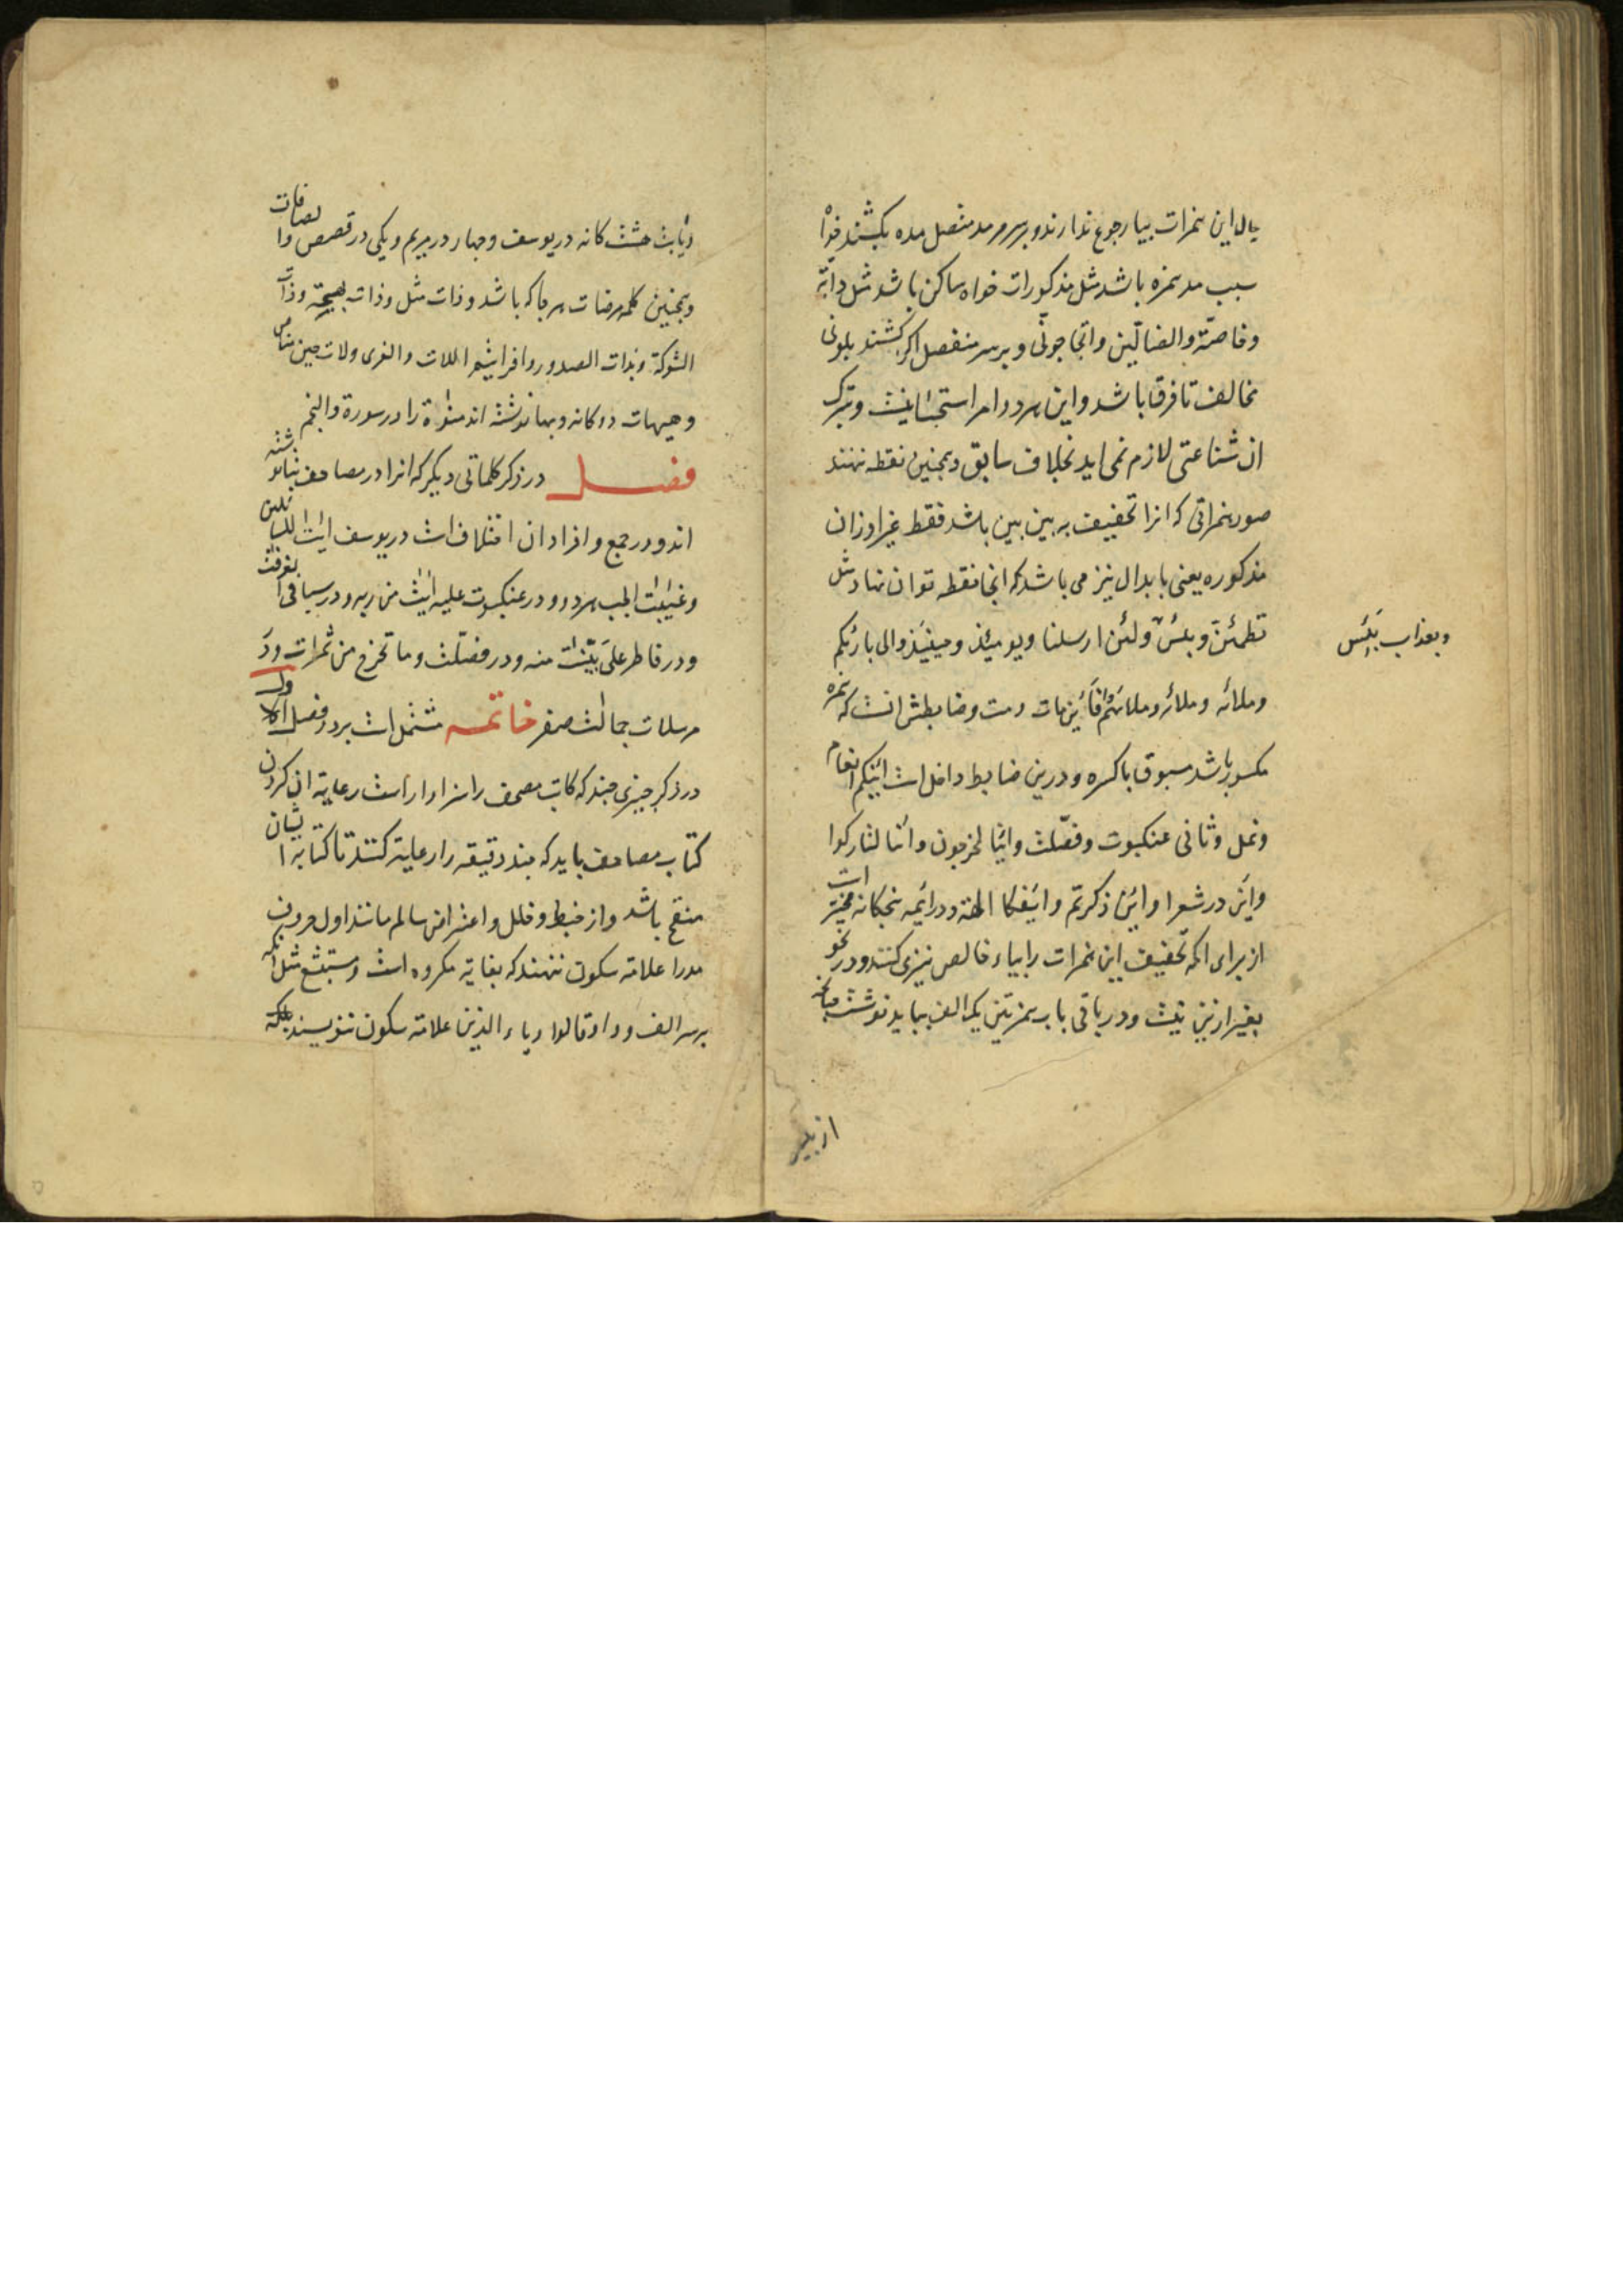 یال این همزات بیا رجوع ندارند و بر سر مد متصل مده بکشند خواه
سبب مد همزه باشد مثل مذکورات خواه ساکن باشد مثل دابّة
وخاصّة والضالّین واتحاجونّی و بر سر منفصل اگر کشند بلونی
مخالف تا فرق باشد و این هر دو امر استحسانیست و بترک
ان شناعتی لازم نمی اید بخلاف سابق و همچنین نقطه ننهند
صور همزاتی که انرا تخفیف به بین بین باشد فقط غیر اوزان
مذکوره یعنی بابدال نیز می باشد که انجا نقطه توان نهاد مثل
تطمئن وبئس ولئن ارسلنا ویومئذ وحینئذ والی بارئکم
وبعذاب بَئِس
وملائه وملائه وملائهم قائین مات ومت وضابطش انست که همزه
مکسور باشد مسبوق باکسره و درین ضابط داخل است ائنکم انعام
ونمل وثانی عنکبوت وفصّلت وائنا لمخرجون وائنا لتارکوا
وائن در شعرا وائن ذکرتم وائفکا الهة و در ائمه پنجکانه مخیّر است
از برای انکه تخفیف این همزات را بیاء خالص نیز می کنند و در نحو
بغیر ازین نیست و در باقی باب همزتین یک الف بباید نوشت چنانچه
از بیر
ویٰابت هشت کانه در یوسف و چهار در مریم و یکی در قصص و صافات
و همچنین کلمه مرضات هر جا که باشد و ذات مثل و ذات بهجة و ذات
الشوکة و بذات الصدور و افرایتم اللات والعزی ولات حین مناص
وهیهات دوکانه و بها نوشته اند منوة را در سورة والنجم
فصل در ذکر کلماتی دیگر که انرا در مصاحف بتا نوشته
اند و در جمع و افراد ان اختلاف است در یوسف ایت للسائلین
وغیبت الجب هر دو و در عنکبوت علیه ایت من ربه و در سبا فی الغرفت
و در فاطر علی بیّنت منه و در فصّلت وما تخرج من ثمرات و در
مرسلات جمالت صفر خاتمه مشتمل است بر دو فصل فصل اول
در ذکر چیزی چند که کاتب مصحف را سزاوار است رعایة ان کردن
کتاب مصاحف باید که چند دقیقه را رعایة کنند تا کتابة ایشان
منقح باشد و از خبط و خلل و اعتراض سالم ماند اول حروف
مد را علامة سکون ننهند که بغایة مکروه است و مستبشع مثل انکه
بر سر الف و واو قالوا و یاء الذین علامة سکون ننویسند بلکه